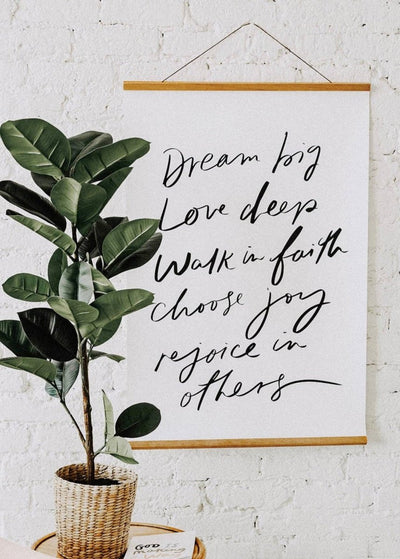 Dream big
Love deep
Walk in faith
choose joy
rejoice in
others
GOD is
making